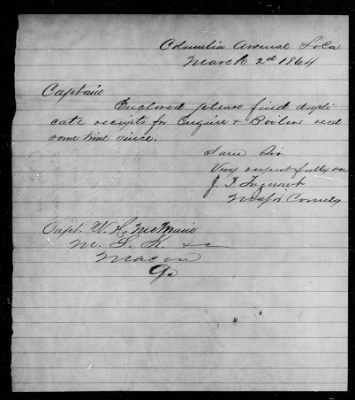 Columbia Arsenal S. Ca
March 2d 1864
Captain
Enclosed please find dupli
cate receipts for Engine & Boiler recd
some time since.
I am Sir
Very respectfully
J. T. Trezevant
Major Comdg
Capt. W. H. McMain
M. S. K. &c
Macon
Ga